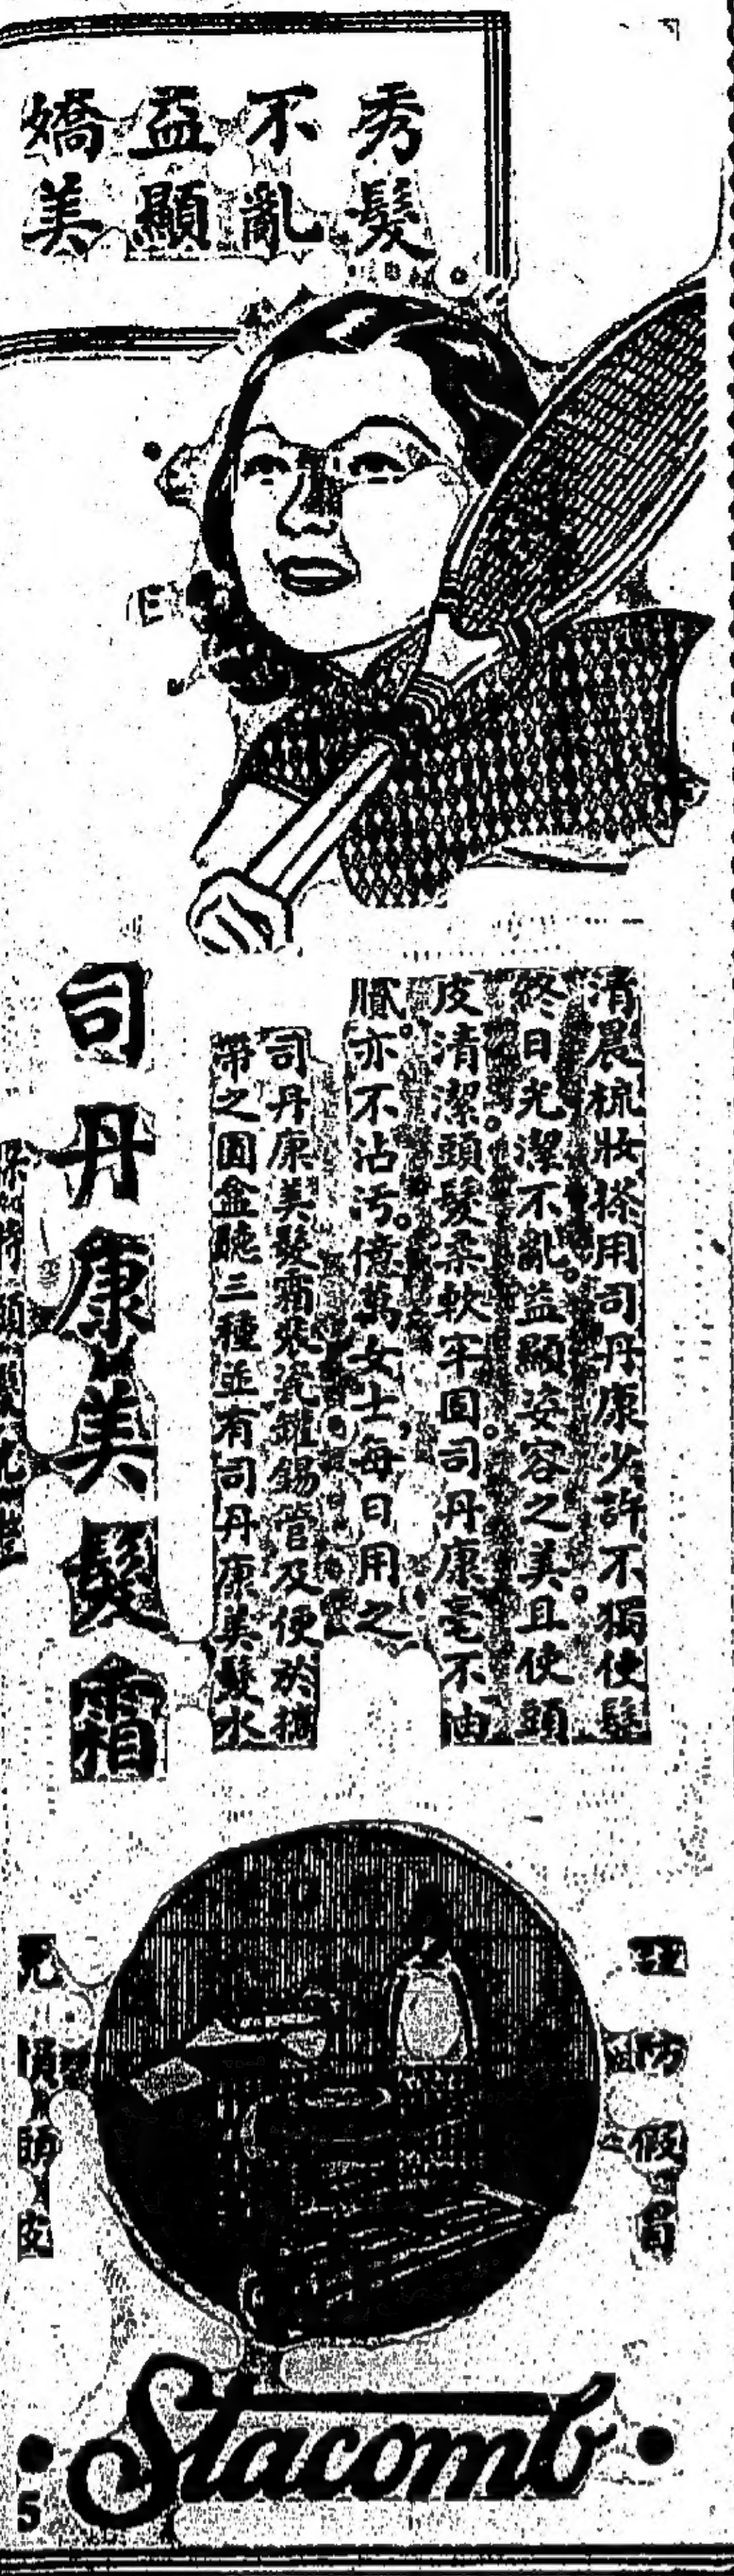 秀髮
不亂
益顯
嬌美
清晨梳妝搽用司丹康少許不獨使髮
終日光潔不亂。益顯姿容之美。且使頭
皮清潔。頭髮柔軟牢固。司丹康毫不油
膩。亦不沾污。億萬女士,每日用之
司丹康美髮霜裝瓷罐錫管及便於攜
帶之圓盒聽三種並有司丹康美髮水
司丹康美髮霜
謹防假冒
免損頭皮
Stacomb
5